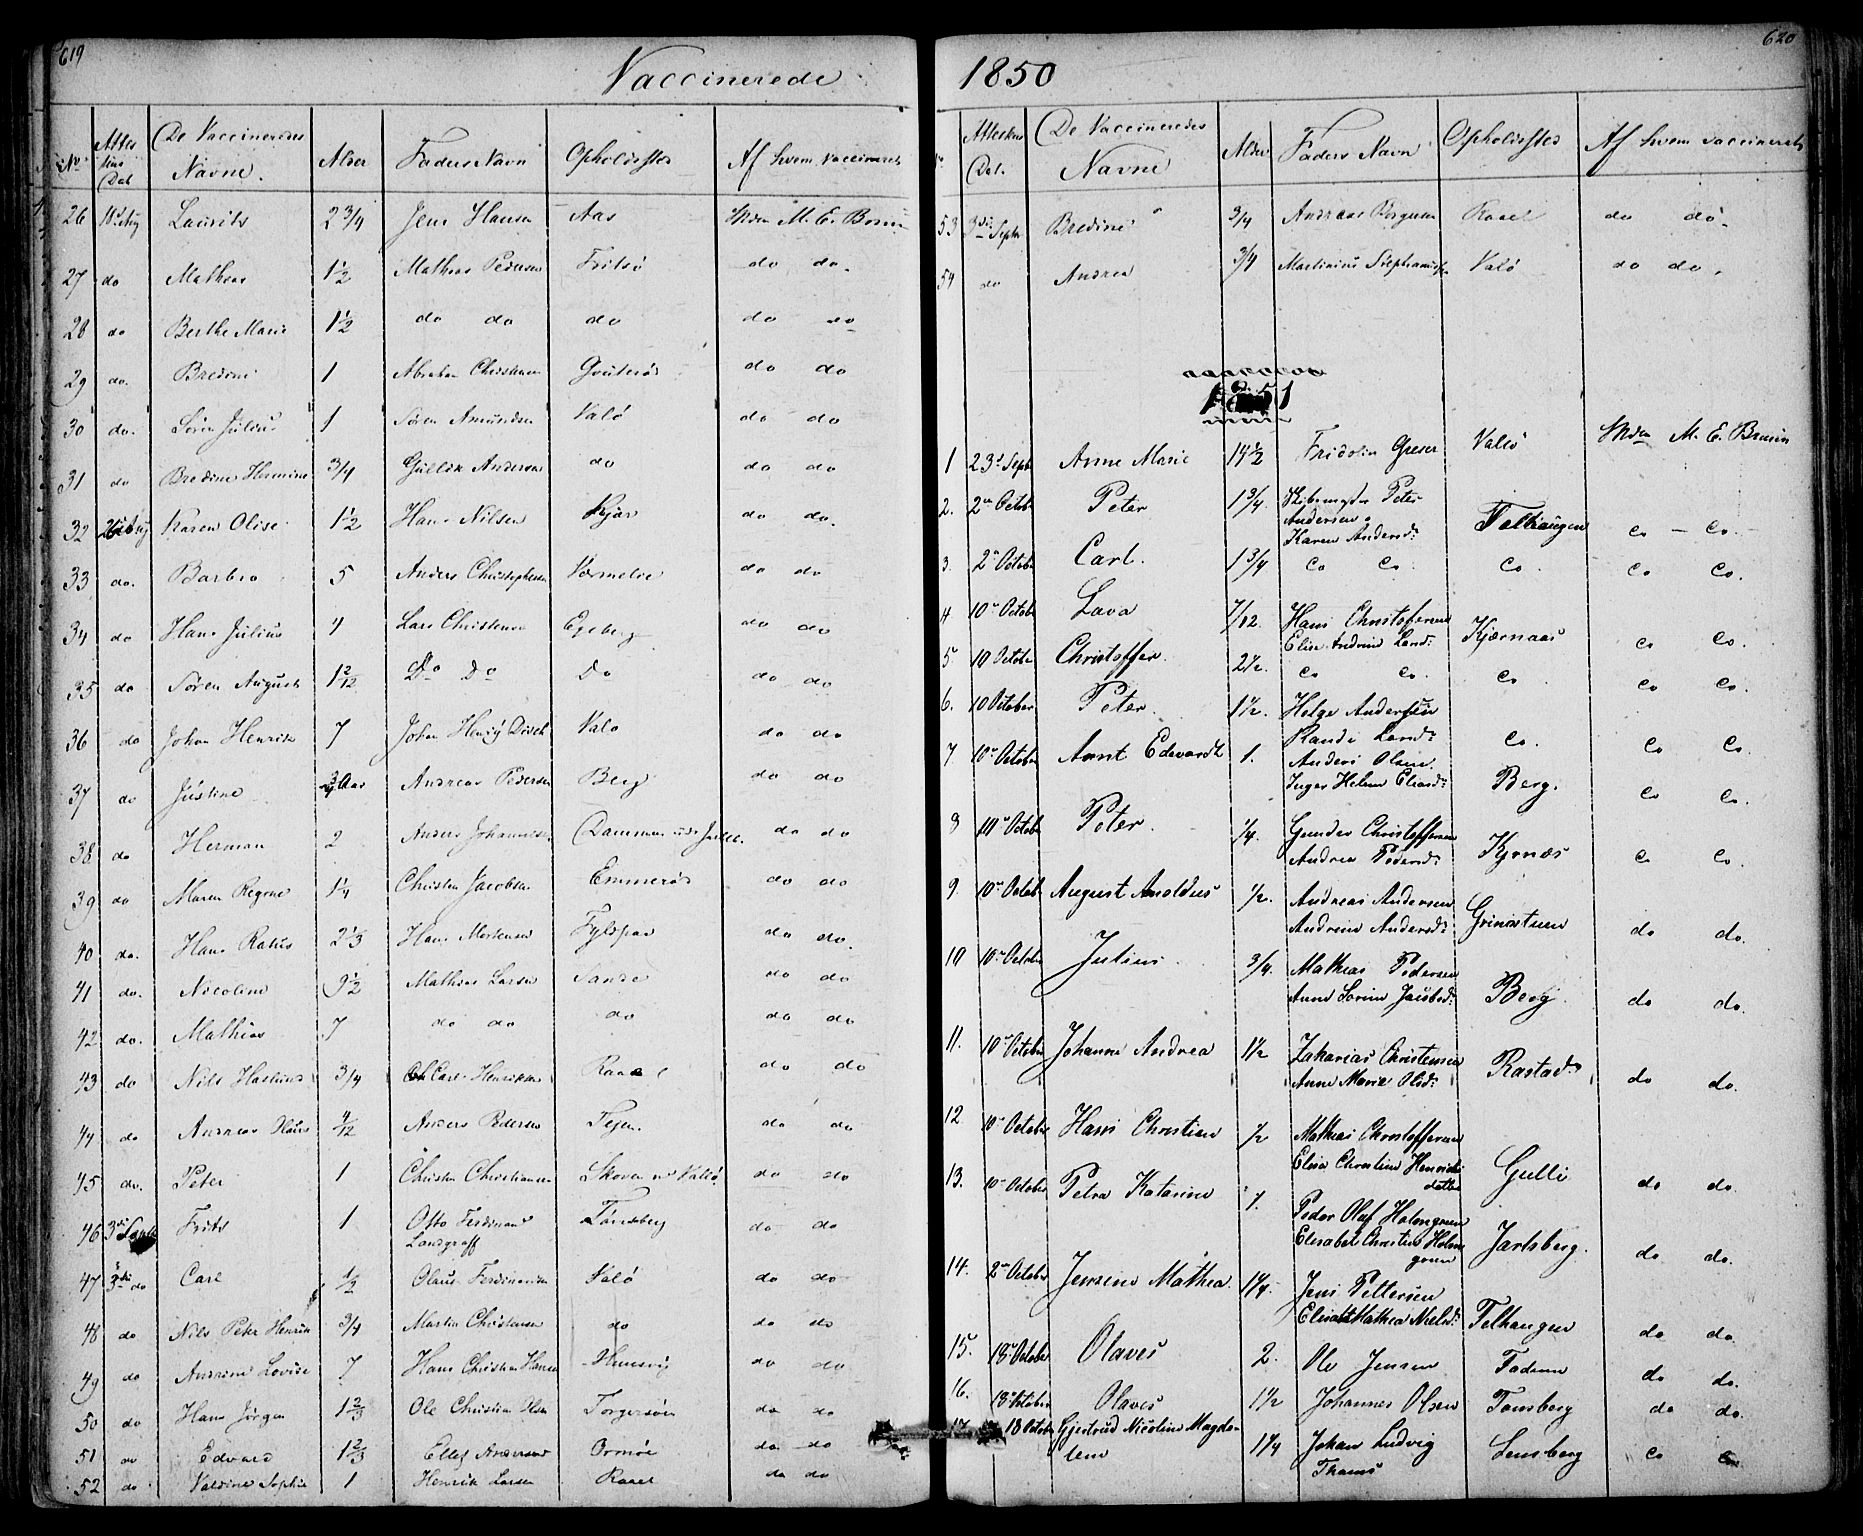 619
Vaccinerede
No. Attestens Dat. De Vaccineredes Navne. Alder Faders Navn Opholdssted Af hvem vaccineret
26 Laurits 2 3/4 Jens Hansen Aas M. E. Bruun
27 do Mathias 1 1/2 Mathias Pedersen Fritsö do do.
28 do Berthe Marie 1 1/2 do do do do do
29 do. Bredine 1 Abraham Christensen do do
30 do. Sören Julius 1 Sören Amundsen Valö do do
31 do Bredine Hermine 3/4 Gullik Andersen do do do
32 Karen Olise 1 1/2 Hans Nilsen Kjær do do.
33 do. Barbro 5 Anders Christophersen do do
34 do Hans Julius 4 Lars Christensen Egeberg do do
35 do Sören August 1 2/12 Do Do Do do do
36 do Johan Henrik 7 Johan Valö do do
37 do Justine 3/4 Aar Andreas Pedersen Berg do do
38 do Herman 2 Anders Johannesen do do
39 do Maren Regine 1 1/4 Christen Jacobsen Emmeröd do do
40 do. Hans 2 1/3 Hans Mortensen do do.
41 do. Nicoline 9 1/2 Mathias Larsen Sande do do
42 do. Mathias 7 do do do do do
43 do Nils 3/4 Carl Henriksen Raael do do
44 do Andreas 4/12 Anders Pedersen do do
45 do. Peter 1 Christen Christiansen Skoven v Vallö do do
46 3die Septb Frits 1 Otto Ferdinand Landgraff Tönsberg do do
47 3die do Carl 1/2 Olaus Ferdinandsen Valö do do
48 do Nils Peter Henrik 3/4 Martin Christensen do do do
49 do Andrine Lovise 7 Hans Christian Hansen do do
50 do Hans Jörgen 1 2/3 Ole Christian Olsen Torgersöen do do
51 do Edvard 1 2/3 Ellef Andersen Ormöe do do
52 do Valdine Sophie 1 Henrik Larsen Raael do do
620
1850
Attestens Dat. De Vaccineredes Navne Alder Faders Navn Opholdssted Af hvem vaccineret
53 3die Septr Bredine 3/4 Andreas Raael do do
54 do Andrea 3/4 Martinius Valö do do.
1851
1 23d Septb Anne Marie 14 1/2 Fridolin Greser Valö M. E. Bruun
2. 2en Octob Peter 1 3/4 Peter
Andersen
Karen Andersd: Telhaugen Co — Co.
3. 2n Octobr Carl. 1 3/4 Co Co. Co. Co Co.
4 10n Octobr Lava 7/12. Hans Christoffersen
Elise Andrine Larsd: Kjærnaas Co Co.
5. 10 Octobr Christoffer. 2 1/2. Co Co. Co. Co Co.
6. 10 October Peter. 1 1/2. Helge Andersen
Randi Larsd: Co. Co Co.
7. 10n Octobr Arnt Edevardt 1. Anders Olsen.
Inger Helene Eliasd: Berg. Co Co.
8 10n Octobr Peter. 1/4. Gunder Christoffersen
Andrea Pedersd: Kjrnæs Co Co.
9 10n Octobr August Arnoldus 1/2. Andreas Andersen
Andrine Andersd: Grinastuen do do.
10 10n Octobr Julius. 3/4. Mathias Pedersen
Anne Sorine Jacobsd: Berg. do do.
11. 10n Octobr Johanne Andrea 1 1/2 Zakarias Christensen
Anne Marie Olsd: Rastad do do.
12 10n October Hans Christian 1/2 Mathias Christoffersen
Elisa Christine Henriksdatter Gulli do do.
13. 10n October Petra Katarine 1. Peder Olaf Holmgreen
Elisabet Christine Holmgreen Jarlsberg. do do.
14. 2n October Jensine Mathea. 1 1/4. Jens Pettersen
Elisabet Mathea Nielsd: Telhaugen do do.
15. 18n October Olaves 2. Ole Jensen do do.
16. 18 October Olaves 1 1/2 Johannes Olsen Tonsberg do do.
17. 18 October Gjertrud Nicoline Magdalene 1 1/4 Johan Ludvig
Thams Co Co